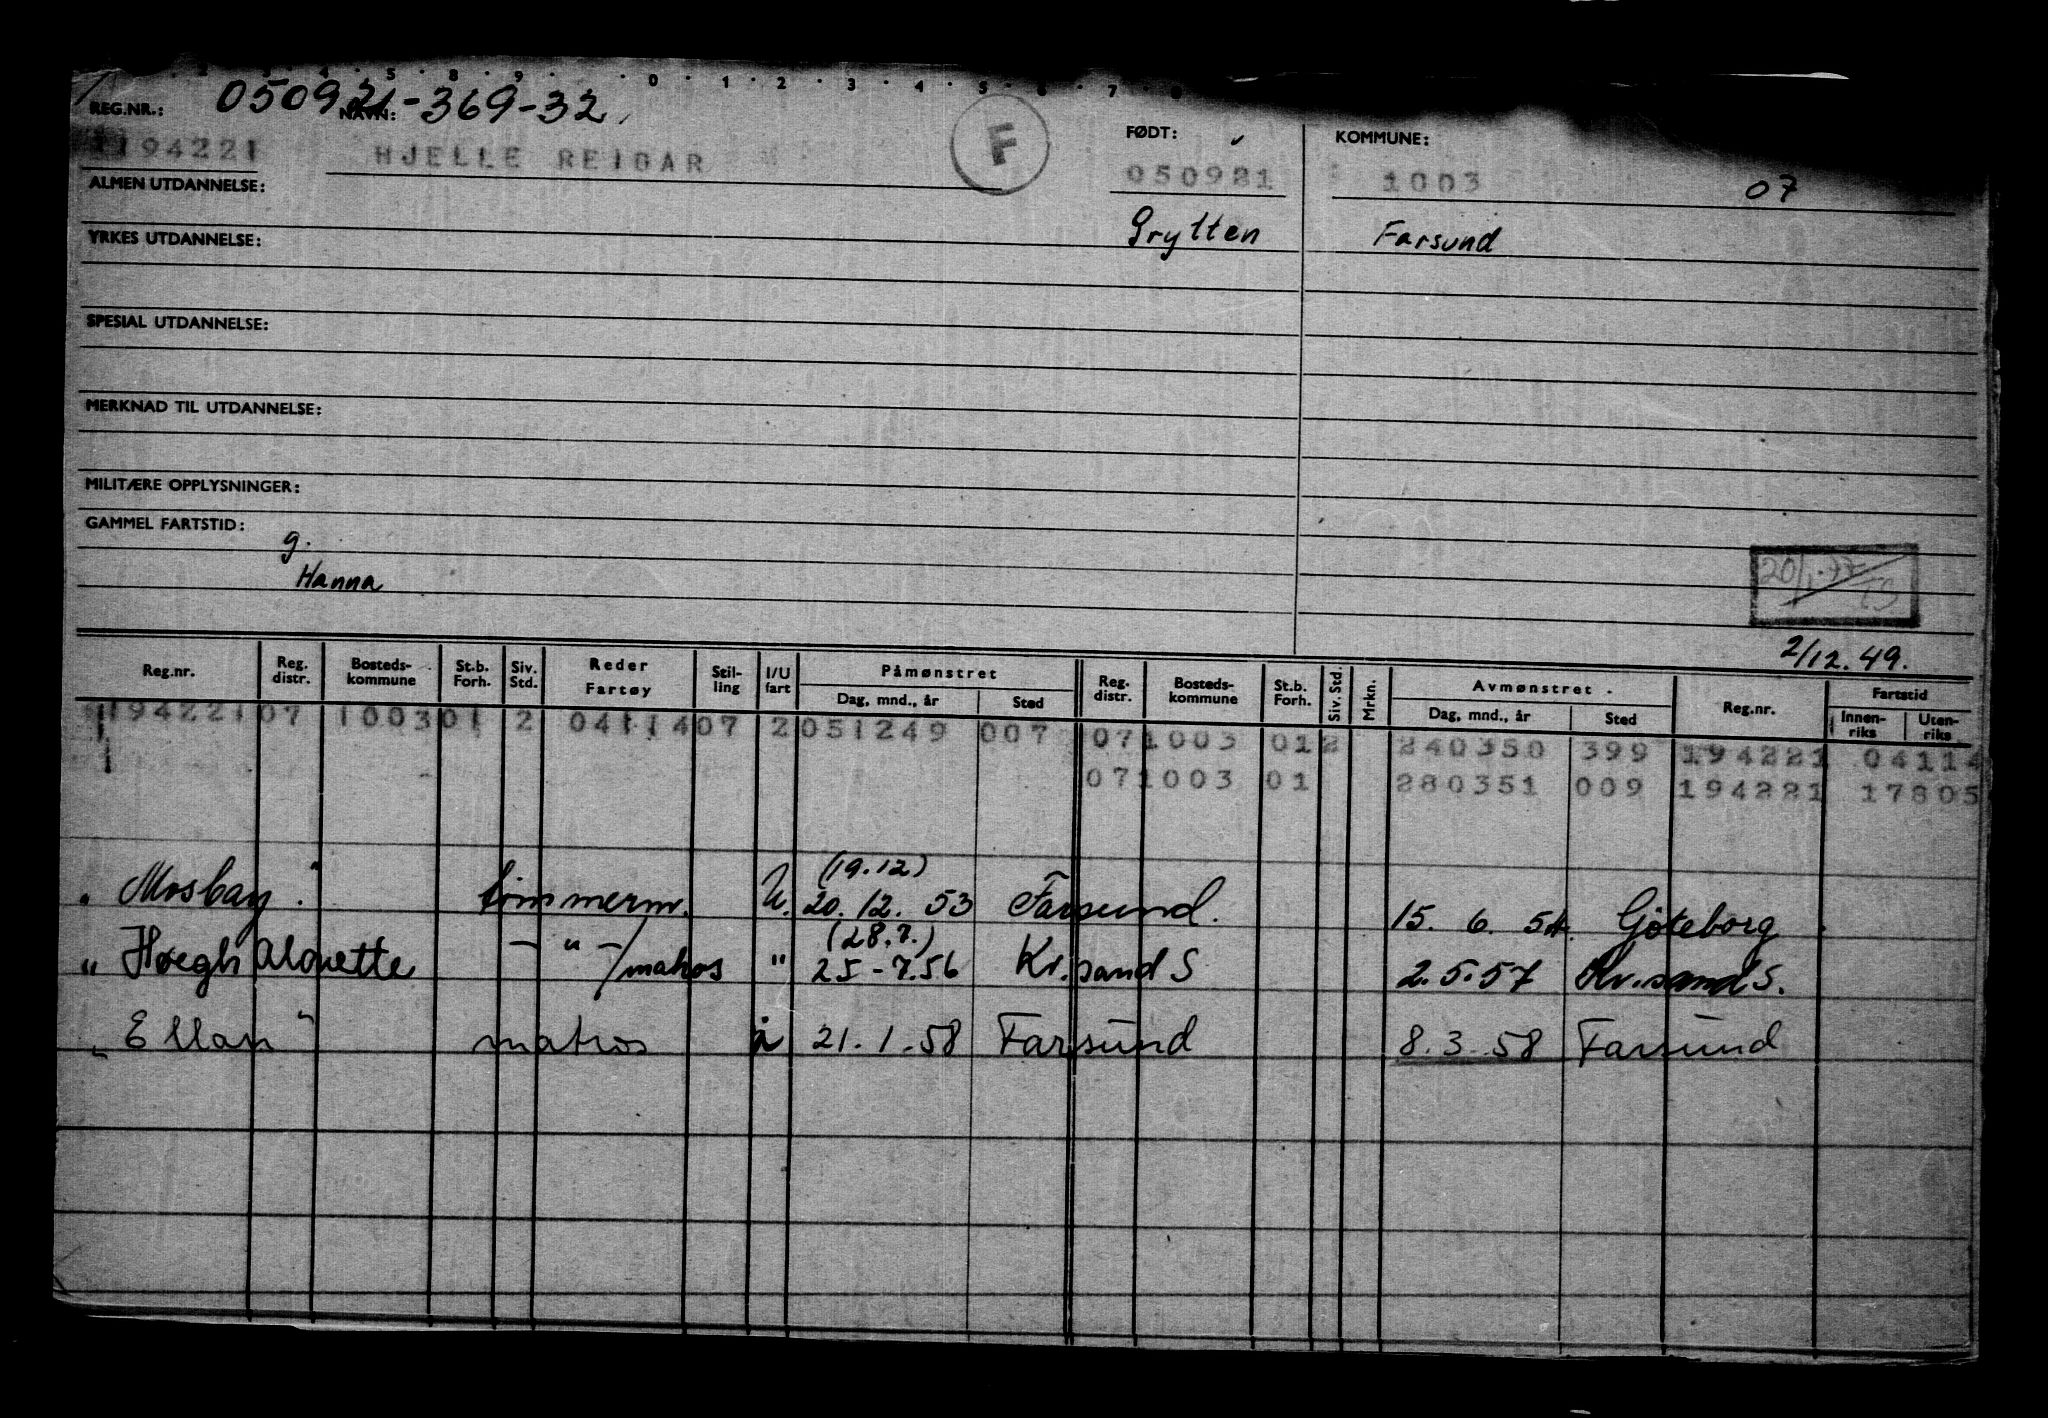 2 . 3 . 4 . 5 . 8 . 9 . 0 . 1 . 2 . 3 . 4 . 5 . 6 . 7 . 8
REG.NR.: 050921-369-32 NAVN: FØDT: KOMMUNE:
194221 HJELLE REIDAR F 050921 1003 07
ALMEN UTDANNELSE:
Grytten Farsund
YRKES UTDANNELSE:
SPESIAL UTDANNELSE:
MERKNAD TIL UTDANNELSE:
MILITÆRE OPPLYSNINGER:
GAMMEL FARTSTID:
g.
Hanna
20/1-77
2/12.49.
Reg.nr. Reg. distr. Bosteds-kommune St.b. Forh. Siv. Std. Reder Fartøy Stil-ling I/U fart Påmønstret Dag, mnd., år Sted Reg. distr. Bosteds-kommune St.b. Forh. Siv. Std. Mrkn. Avmønstret. Dag, mnd., år Sted Reg.nr. Fartstid Innen-riks Uten-riks
194221 07 1003 01 2 04114 07 2 051249 007 07 1003 01 2 240350 399 194221 04114
07 1003 01 280351 009 194221 17805
(19.12)
„ Mosbay " tømmerm. U. 20. 12. 53 Farsund. 15. 6. 54. Göteborg
(28.7.)
„ Høegh Alouette — " — /matros " 25-7.56 Kr.sand S 2.5.57 Kr.sand S.
„ Ellan " matros i 21.1.58 Farsund 8.3.58 Farsund